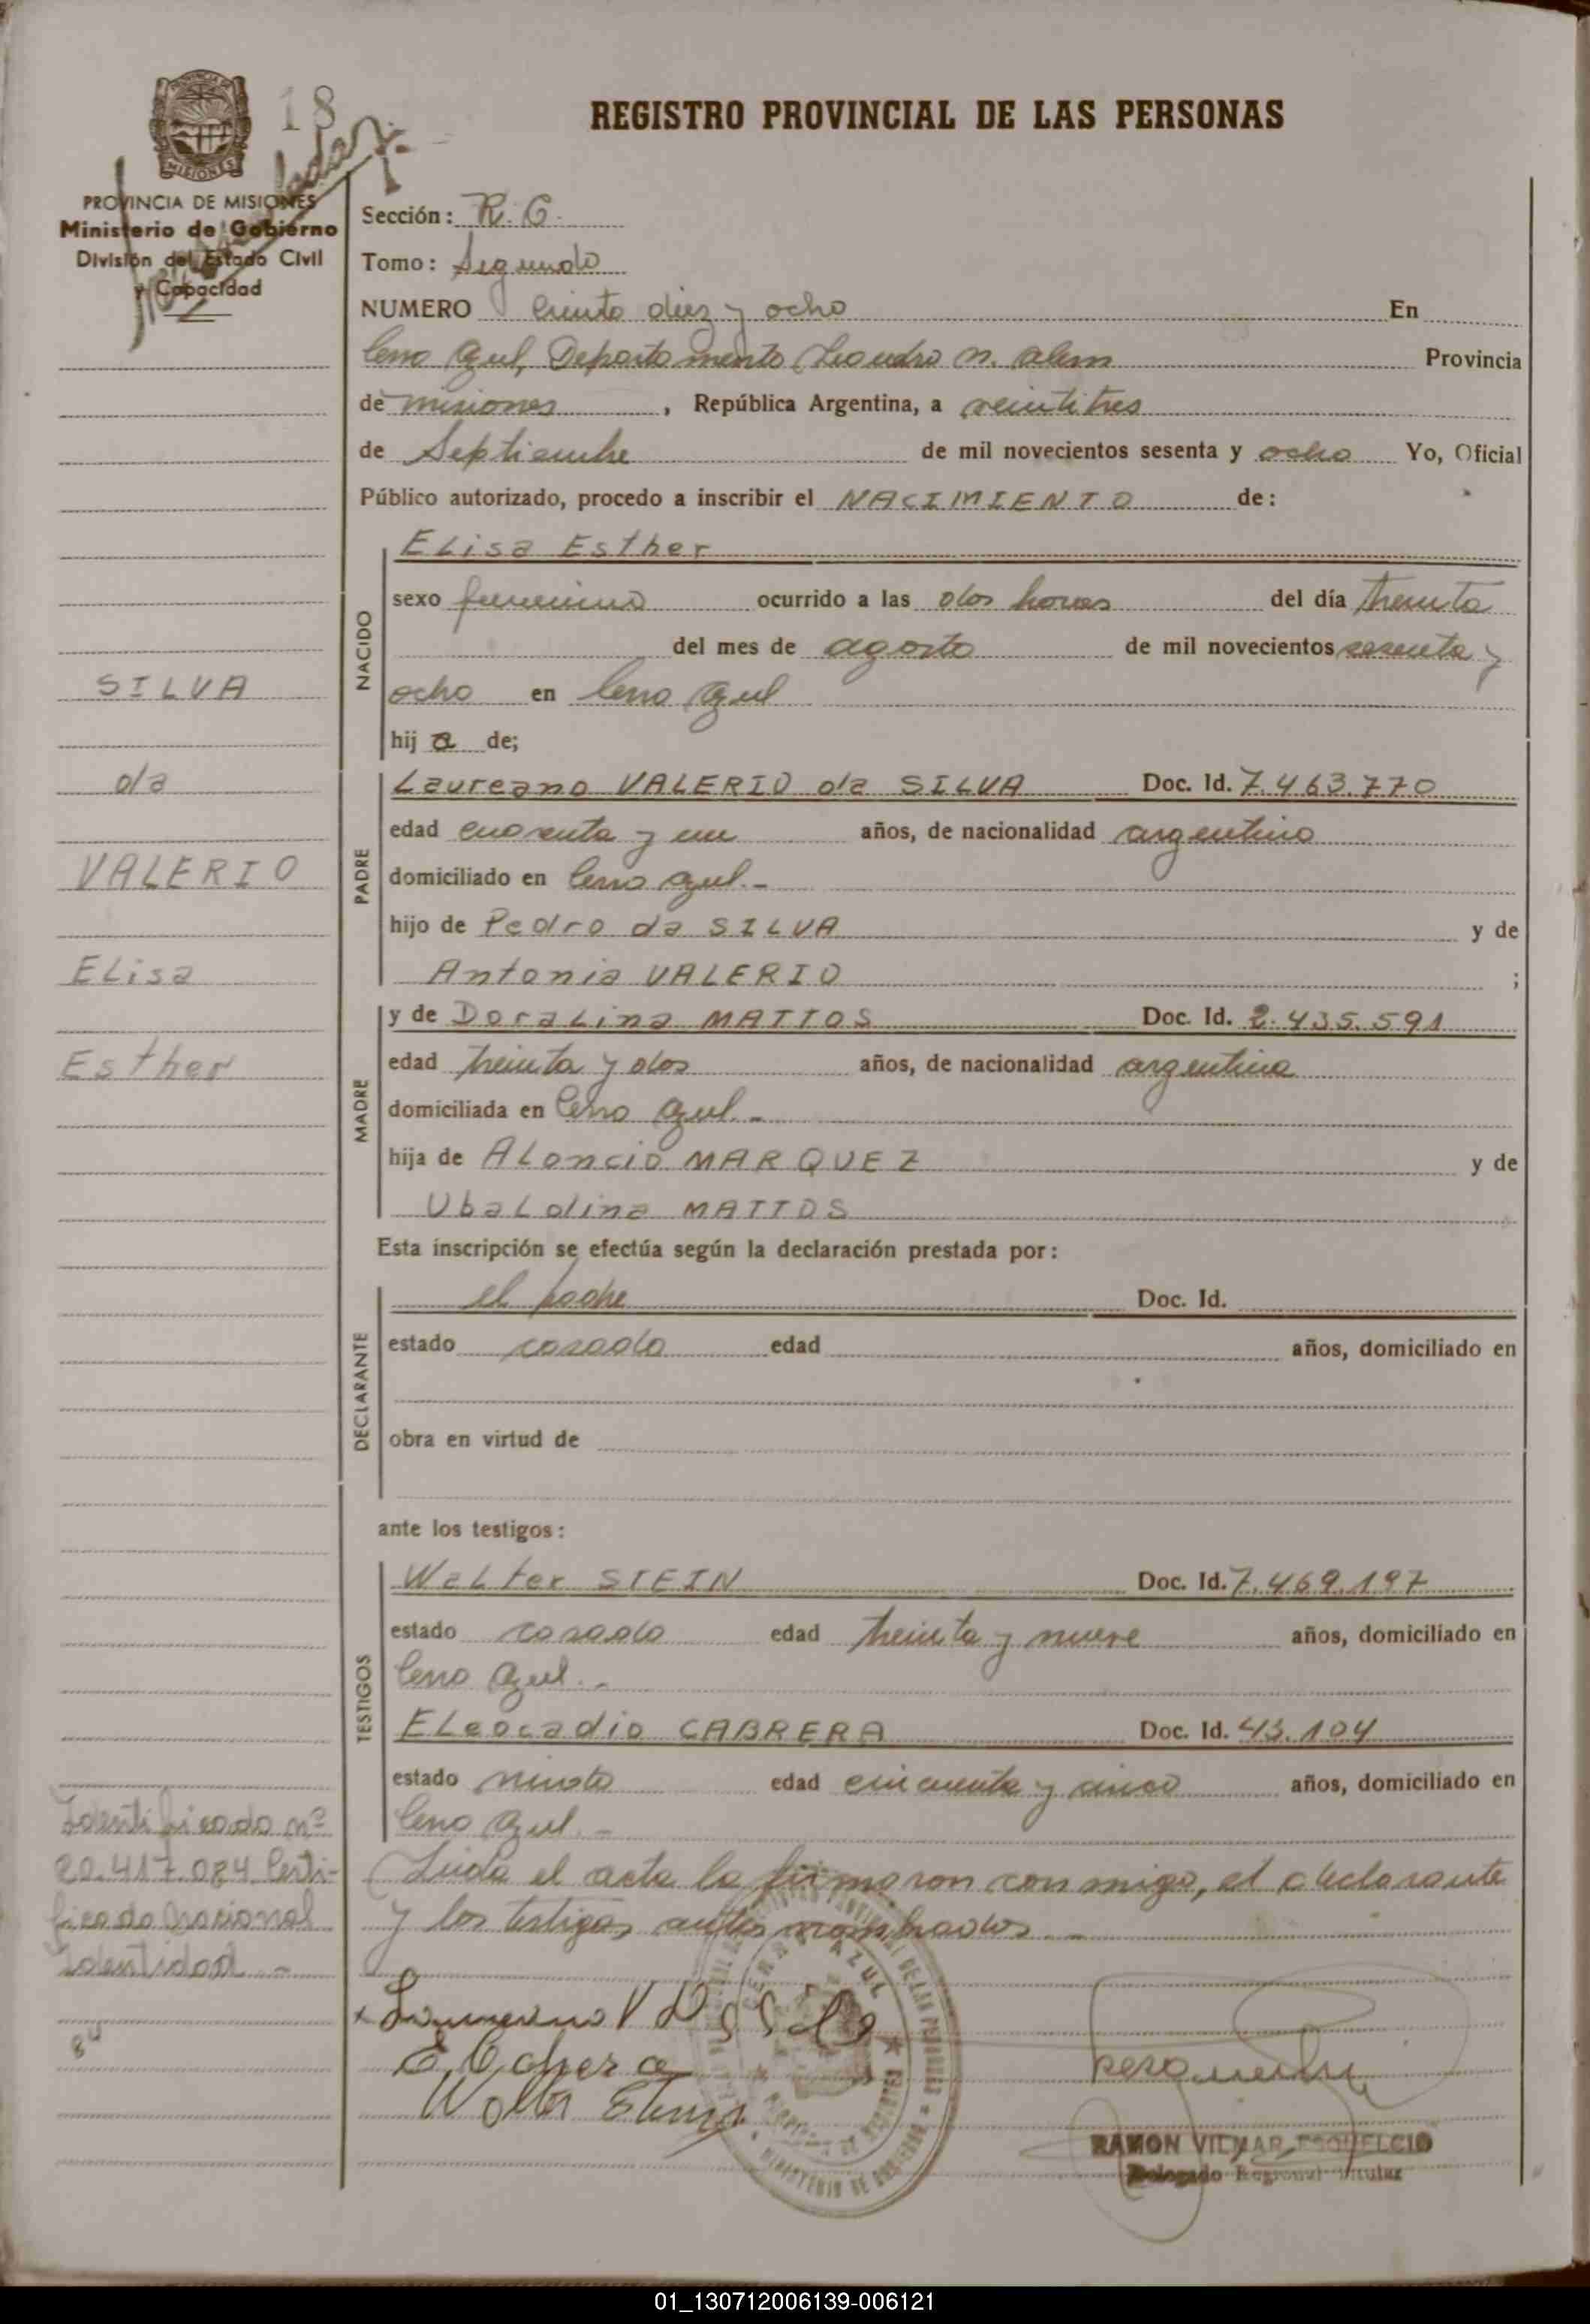 18
REGISTRO PROVINCIAL DE LAS PERSONAS
PROVINCIA DE MISIONES
Ministerio de Gobierno
División del Estado Civil
y Capacidad
Sección: R. C.
Tomo: Segundo
NUMERO Ciento diez y ocho En
Cerro Azul, Departamento Leandro N. Alem Provincia
de Misiones, República Argentina, a veintitres
de Septiembre de mil novecientos sesenta y ocho Yo, Oficial
Público autorizado, procedo a inscribir el NACIMIENTO de:
NACIDO
Elisa Esther
sexo femenino ocurrido a las dos horas del día treinta
del mes de agosto de mil novecientos sesenta y
ocho en Cerro Azul
hij a de;
SILVA
da
VALERIO
Elisa
Esther
PADRE
Laureano VALERIO da SILVA Doc. Id. 7.463.770
edad cuarenta y un años, de nacionalidad argentino
domiciliado en Cerro Azul.-
hijo de Pedro da SILVA y de
Antonia VALERIO ;
MADRE
y de Doralina MATTOS Doc. Id. 2.435.591
edad treinta y dos años, de nacionalidad argentina
domiciliada en Cerro Azul.-
hija de Aloncio MARQUEZ y de
Ubaldina MATTOS
Esta inscripción se efectúa según la declaración prestada por:
DECLARANTE
el padre Doc. Id.
estado casado edad años, domiciliado en
obra en virtud de
ante los testigos:
TESTIGOS
Walter STEIN Doc. Id. 7.469.197
estado casado edad treinta y nueve años, domiciliado en
Cerro Azul.-
Eleocadio CABRERA Doc. Id. 43.104
estado edad cincuenta y cinco años, domiciliado en
Cerro Azul.-
Leída el acta la firmaron conmigo, el declarante
y los testigos antes nombrados.-
Identificado nº
20.417.084 Certi-
ficado Nacional
Identidad.-
RAMON VILMAR ESQUELCIO
Delegado Regional Titular
CERRO AZUL
01_130712006139-006121